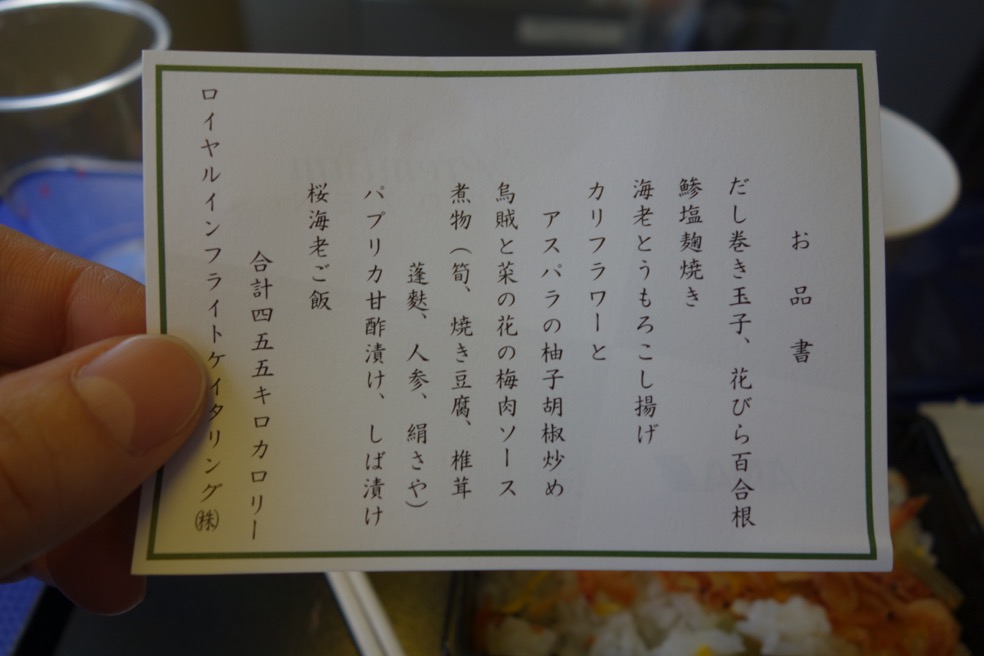 お品書
だし巻き玉子、花びら百合根
鯵塩麹焼き
海老とうもろこし揚げ
カリフラワーと
アスパラの柚子胡椒炒め
烏賊と菜の花の梅肉ソース
煮物（筍、焼き豆腐、椎茸
蓬麩、人参、絹さや）
パプリカ甘酢漬け、しば漬け
桜海老ご飯
合計四五五キロカロリー
ロイヤルインフライトケイタリング㈱